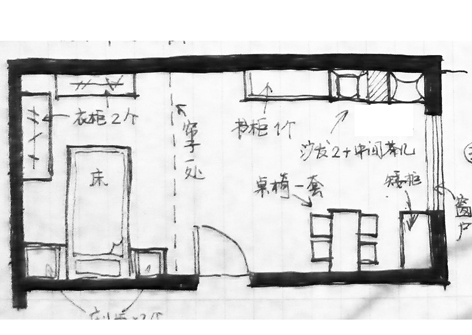 衣柜2个
书柜1个
沙发2+中间茶几
床
桌椅一套
矮柜
窗户